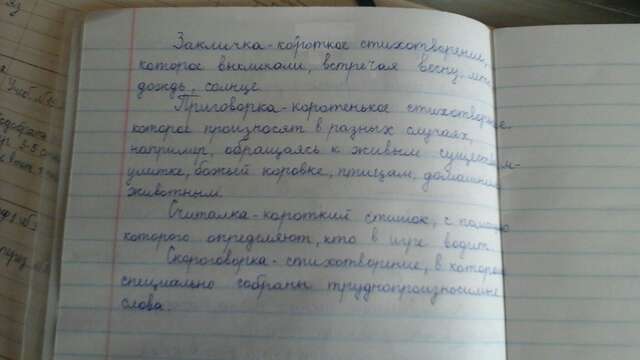 Закличка - короткое стихотворение,
которое выкликали, встречая весну,
дождь, солнце.
Приговорка - коротенькое стихотворение,
которое произносят в разных случаях,
например, обращаясь к живым существам -
улитке, божьей коровке, птицам, домашним
животным.
Считалка - короткий стишок, с помощью
которого определяют, кто в игре водит.
Скороговорка - стихотворение, в котором
специально собраны труднопроизносимые
слова.